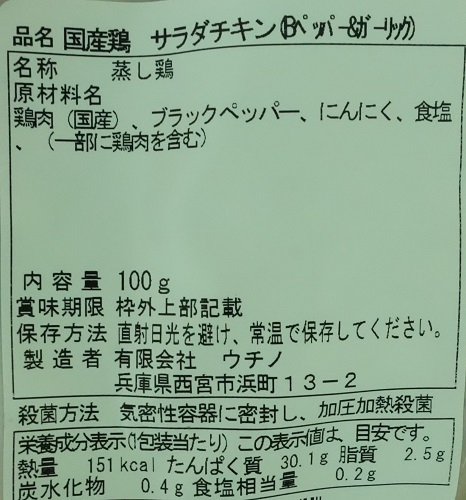 品名 国産鶏 サラダチキン(Bペッパー&ガーリック)
名称 蒸し鶏
原材料名
鶏肉(国産)、ブラックペッパー、にんにく、食塩
、(一部に鶏肉を含む)
内容量 100g
賞味期限 枠外上部記載
保存方法 直射日光を避け、常温で保存してください。
製造者 有限会社 ウチノ
兵庫県西宮市浜町13-2
殺菌方法 気密性容器に密封し、加圧加熱殺菌
栄養成分表示(1包装当たり) この表示値は、目安です。
熱量 151kcal たんぱく質 30.1g 脂質 2.5g
炭水化物 0.4g 食塩相当量 0.2g